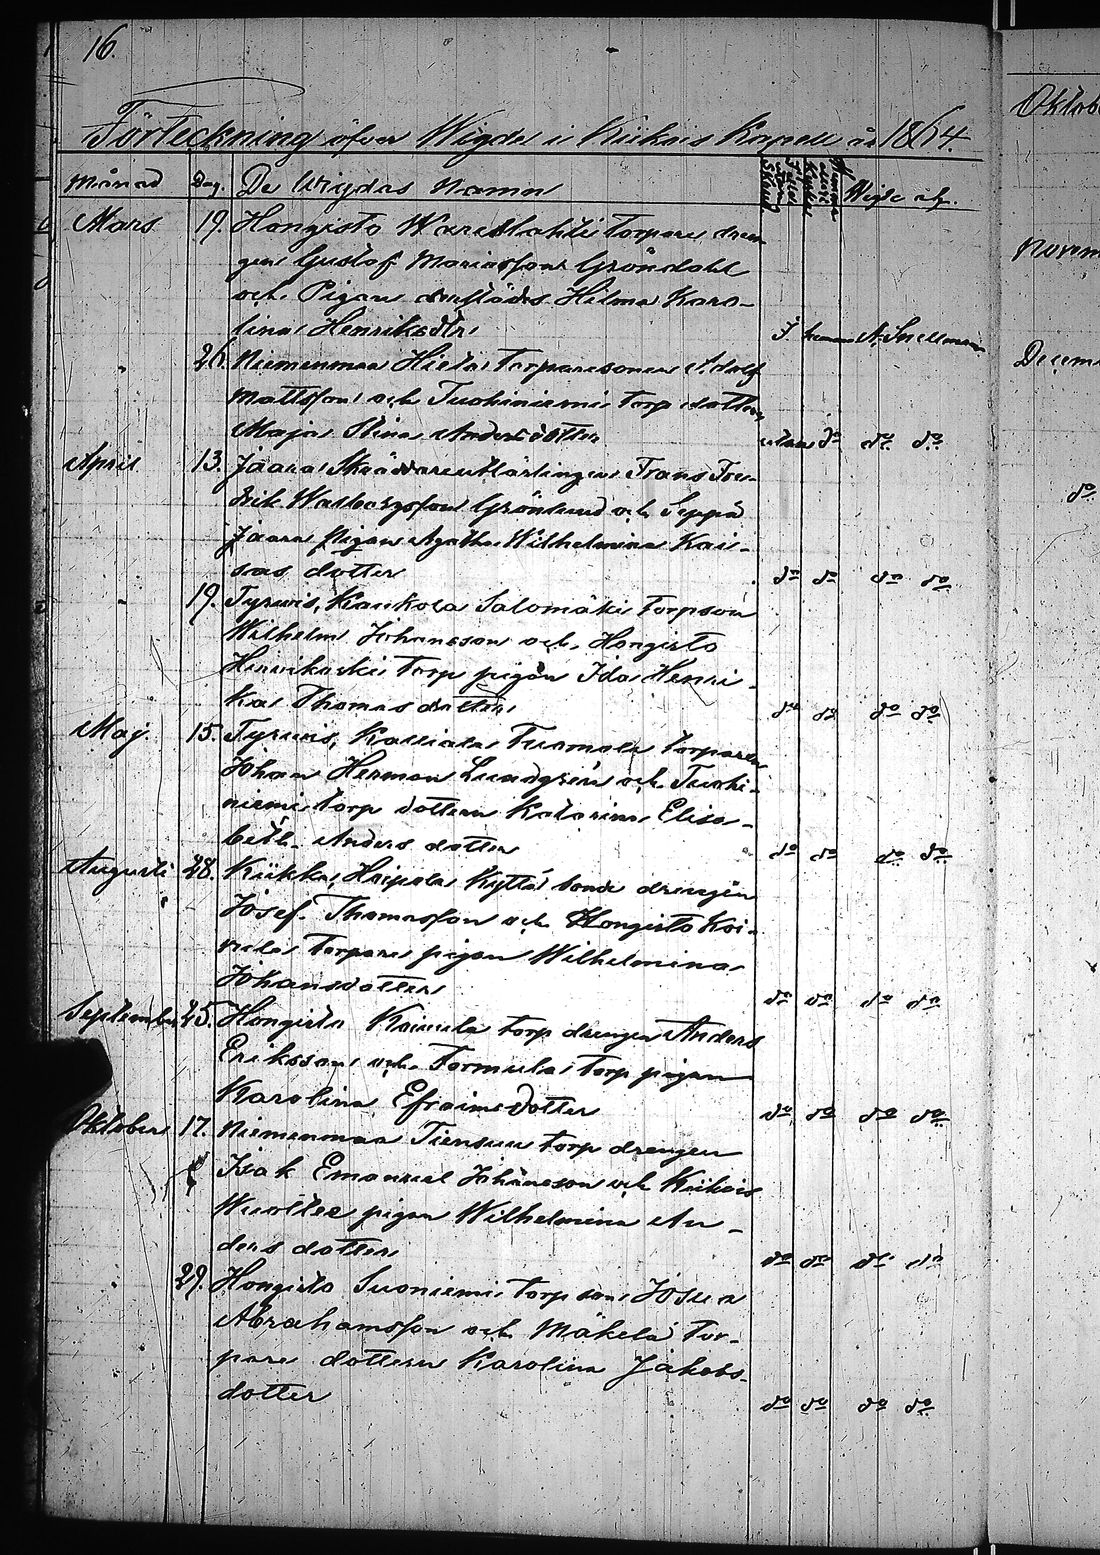 16.
Förteckning öfver Wigde i Kiikois Kapell år 1864.
Månad Dag. De Wigdas Namn Wigde af.
Mars 19. Hongisto Torpare dren
gen Gustof Mariasson Gröndahl
och Pigan derstädes Hilma Karo-
lina Henriksdtr J. hemma A. Snellman
" 26. Niemenmaa Hieta Torparesonen Adolf
Mattsson och Tuohiniemi Torp dottern
Maja Stina Andersdotter utan do do do
April 13. Jaara Skräddare Lärlingen Frans Fre-
drik Walborgsson Grönlund och Seppä
Jaara Pigan Agatha Wilhelmina Kai-
sas dotter do do do do
" 19. Tyrwis, Kaukola Salomäki Torpson
Wilhelm Johansson och Hongisto
Torp pigan Ida Henri-
ka Thomas dotter do do do do
Maj. 15. Tyrwis, Kalliala Tuomola torparen
Johan Herman Lundgrén och Tuohi-
niemi torp dottern Katarina Elisa-
beth Anders dotter do do do do
Augusti 28. Kiikka, Haipola Kyttä bonde drengen
Josef Thomasson och Hongisto Koi-
vula Torpare pigan Wilhelmina
Johansdotter do do do do
September 25. Hongisto Koivula torp drengen Anders
Eriksson och Tormula Torp pigan
Karolina Efraimsdotter do do do do
Oktober 17. Niemenmaa Tiensuu torp drengen
Isak Emanuel Johansson och Kiikois
Wuoltee pigan Wilhelmina An-
ders dotter do do do do
" 29. Hongisto Suoniemi torp son Josua
Abrahamsson och Mäkelä Tor-
pare dottern Karolina Jakobs-
dotter do do do do
Oktob
Novem
Decem
do.